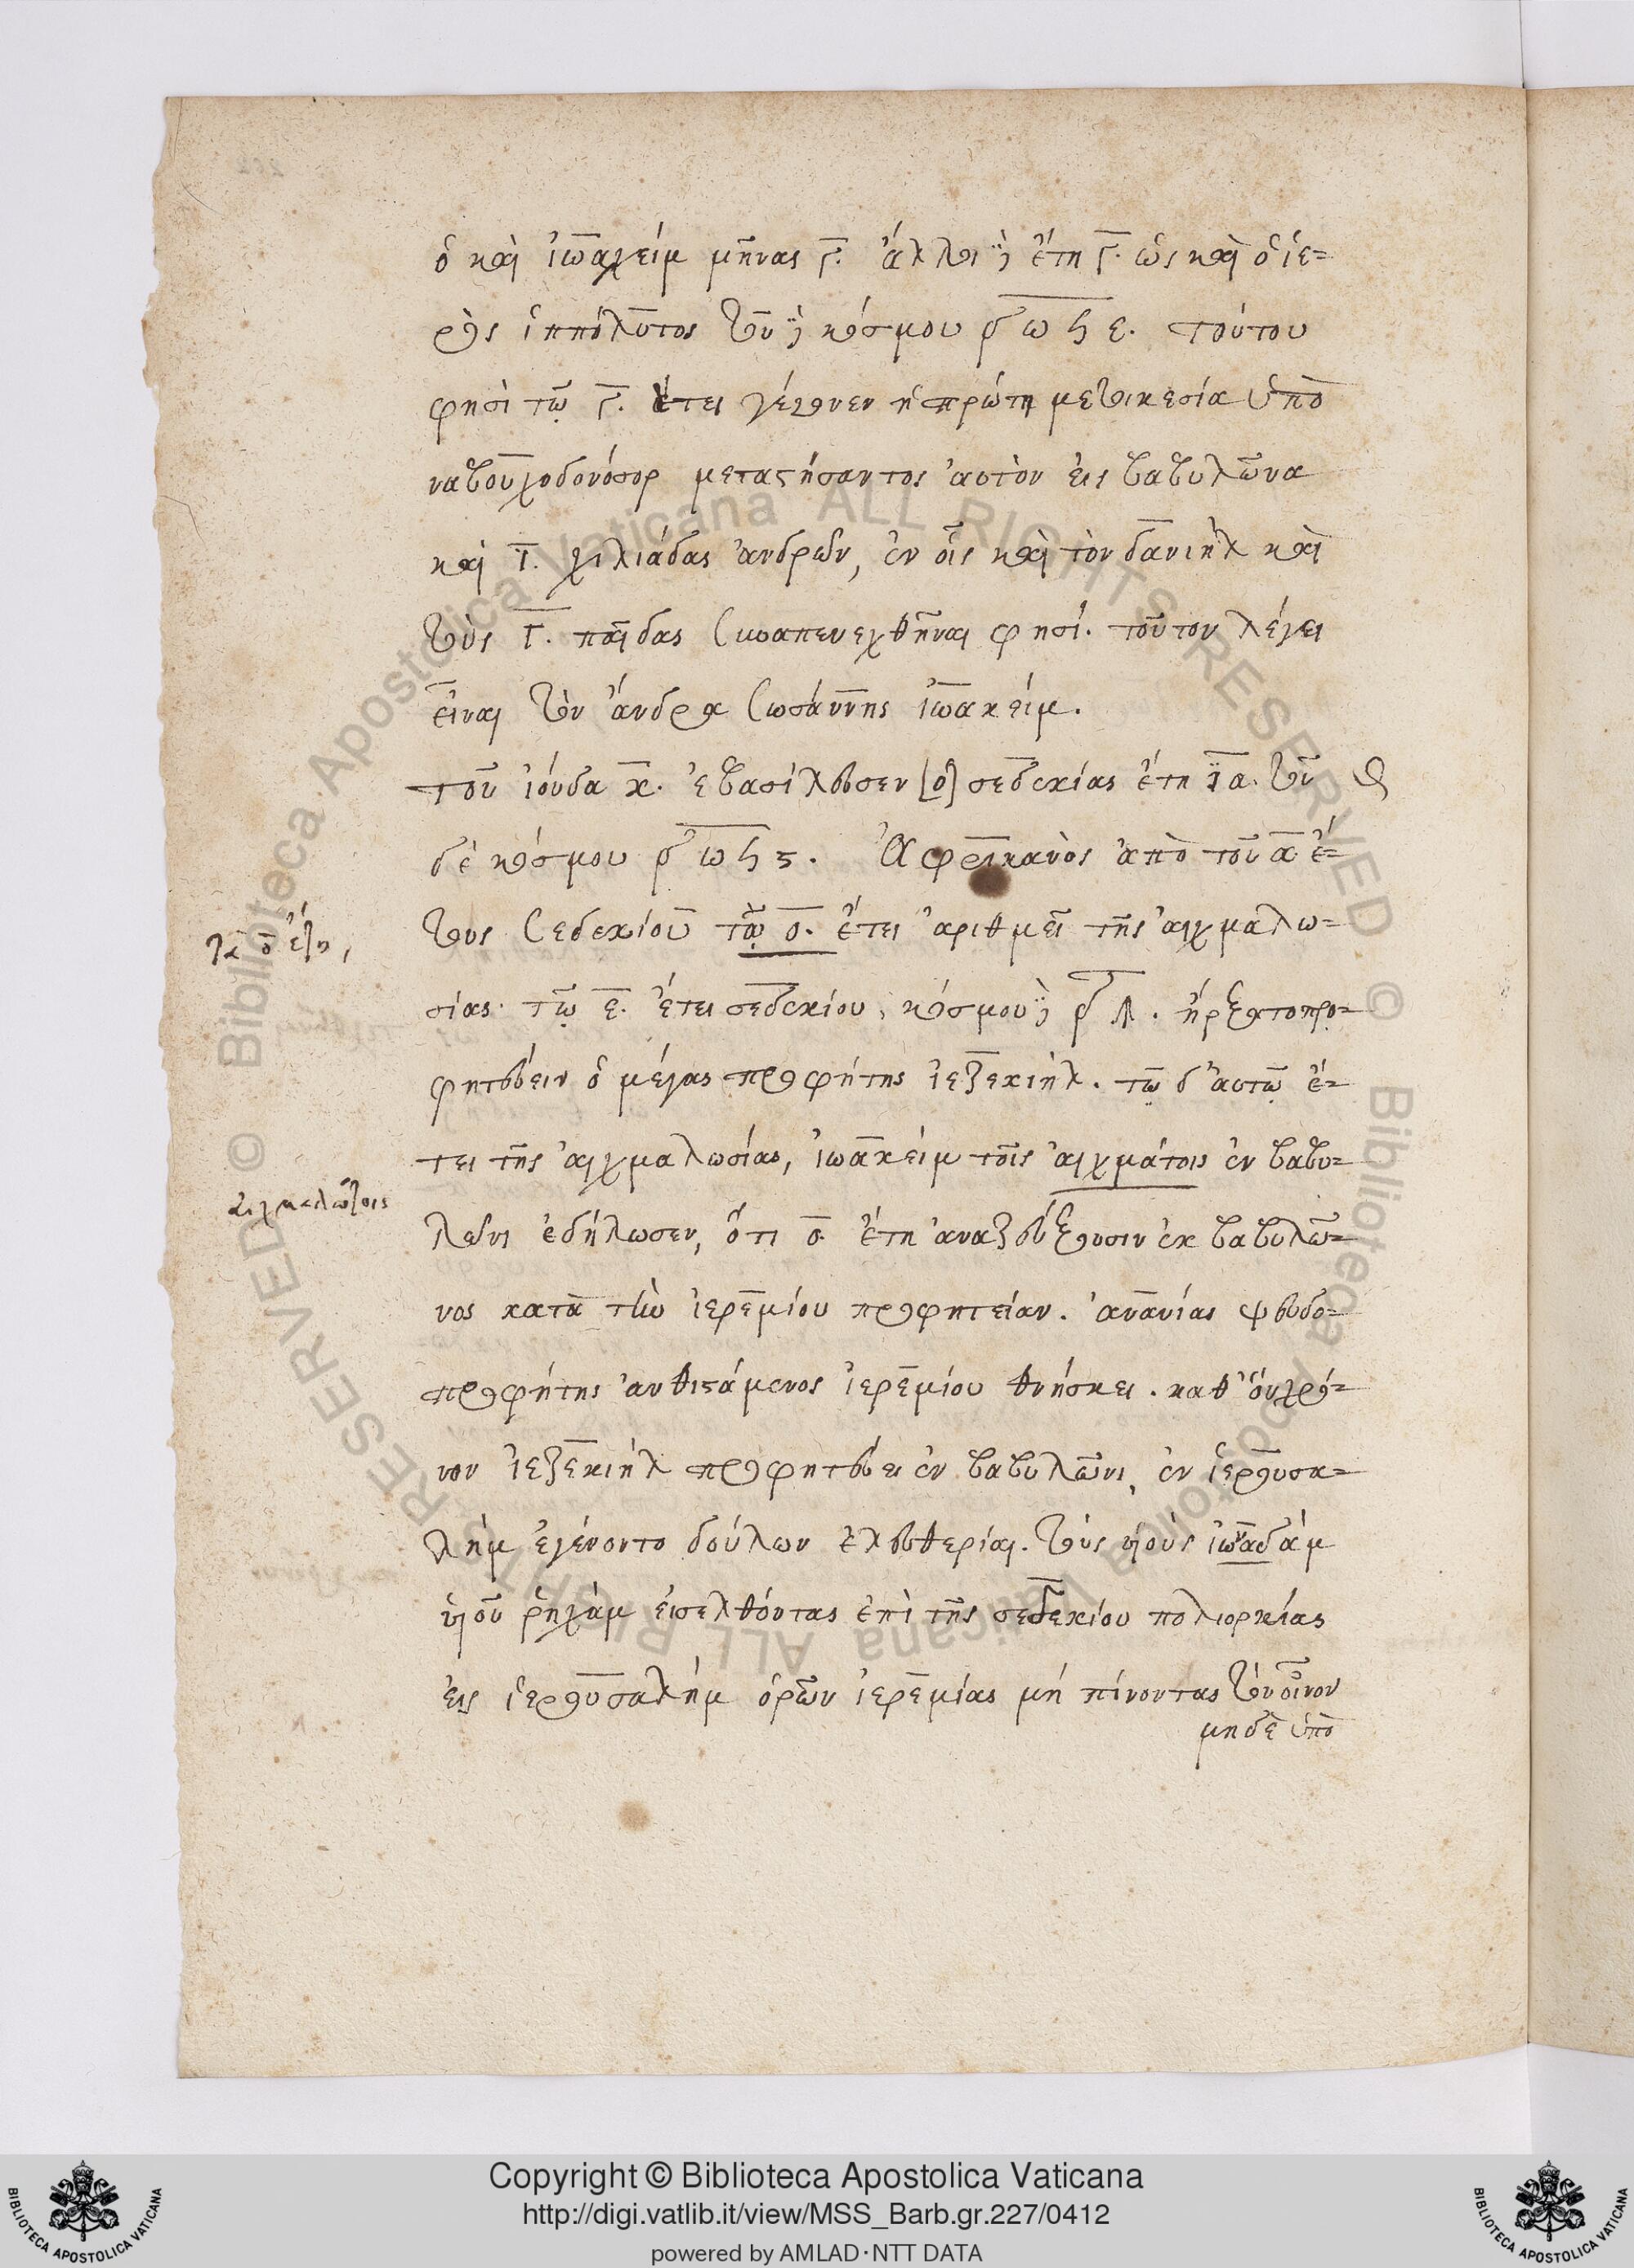 ὁ καὶ ἰωαχείμ μῆνας γ. ἄλλοι δὲ ἔτη γ. ὡς καὶ ὁ ἱε=
ρὸς ἱππόλυτος τοῦ δὲ κόσμου ͵δωϟε. τούτου
φησὶ τῷ γ. ἔτει γέγονεν ἡ πρώτη μετοικεσία ὑπὸ
ναβουχοδονόσορ μεταστήσαντος αὐτὸν εἰς βαβυλῶνα
καὶ ι. χιλιάδας ἀνδρῶν, ἐν οἷς καὶ τὸν δανιὴλ καὶ
τοὺς γ. παῖδας συναπενεχθῆναι φησί. τοῦτον λέγει
εἶναι τὸν ἄνδρα σωσάννης ἰωακείμ.
τοῦ ἰούδα κ. ἐβασίλευσεν [ὁ] σεδεκίας ἔτη ια. τοῦ
δὲ κόσμου ͵δωϟϛ. Ἀφρικανὸς ἀπὸ τοῦ α ἔ=
τους σεδεκίου τῷ ο. ἔτει ἀριθμεῖ τῆς αἰχμαλω=
τὰ ο ἔτη,
σίας. τῷ ε. ἔτει σεδεκίου, κόσμου δὲ ͵δϡ. ἤρξατο προ=
φητεύειν ὁ μέγας προφήτης ἰεζεκιήλ. τῷ δ' αὐτῷ ἔ=
τει τῆς αἰχμαλωσίας, ἰωακείμ τοῖς αἰχμάτοις ἐν βαβυ=
αἰχμαλώτοις
λῶνι ἐδήλωσεν, ὅτι ο. ἔτη ἀναζεύξουσιν ἐκ βαβυλῶ=
νος κατὰ τὴν ἰερεμίου προφητείαν. ἀνανίας ψευδο=
προφήτης ἀνθιστάμενος ἰερεμίου θνήσκει. καθ' ὅν χρό=
νον ἰεζεκιήλ προφητεύει ἐν βαβυλῶνι, ἐν ἱερουσα=
λὴμ ἐγένοντο δούλων ἐλευθερίαι. τοὺς υἱοὺς ἰωναδάμ
υἱοῦ ῥηχάμ εἰσελθόντας ἐπὶ τῆς σεδεκίου πολιορκίας
εἰς ἱερουσαλήμ ὁρῶν ἰερεμίας μή πίνοντας τὸν οἶνον
μηδὲ ὑπὸ
Copyright © Biblioteca Apostolica Vaticana
http://digi.vatlib.it/view/MSS_Barb.gr.227/0412
powered by AMLAD·NTT DATA